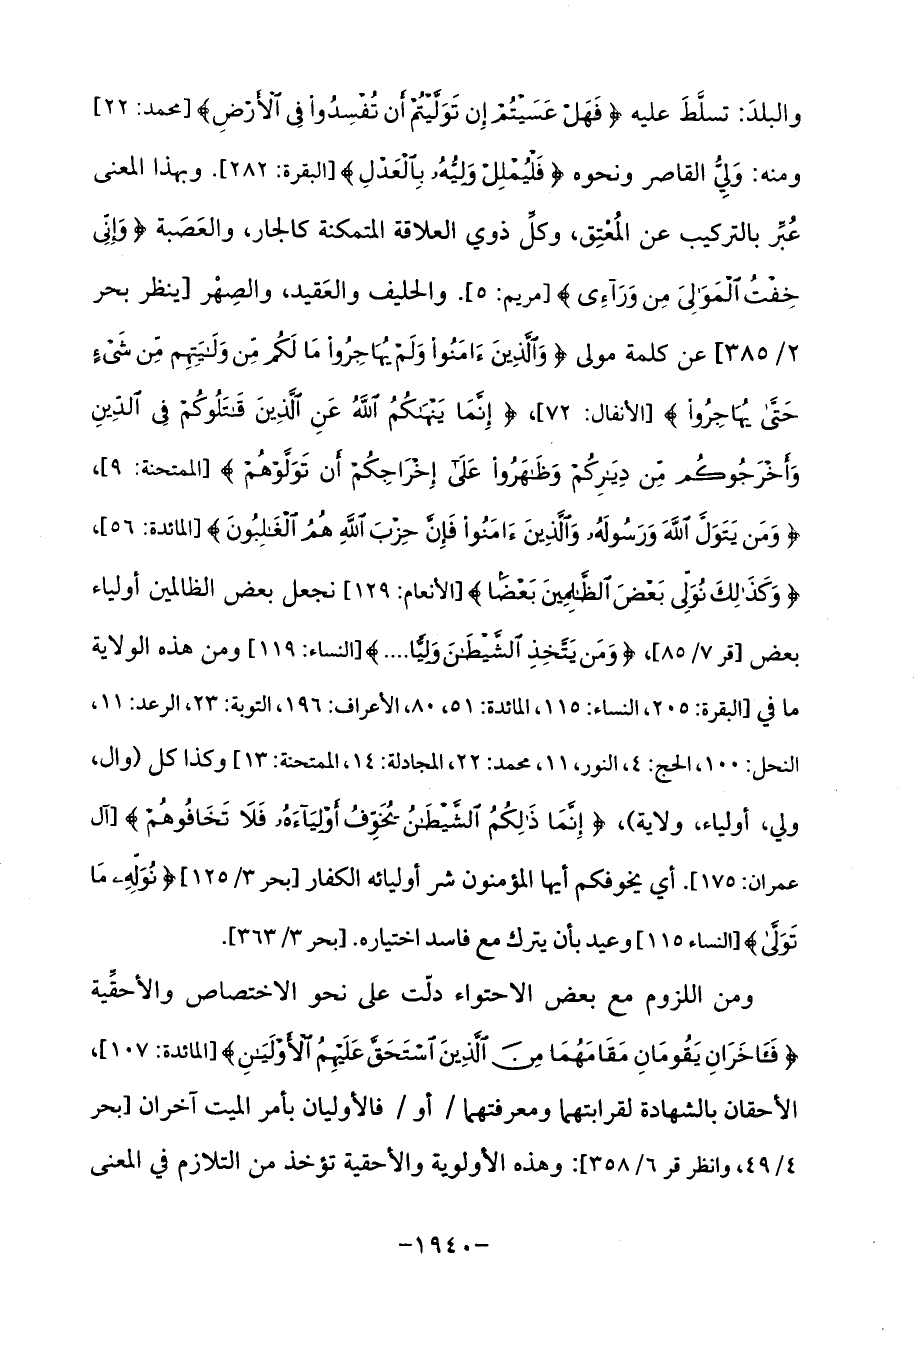 والبلدَ: تسلَّطَ عليه ﴿ فَهَلْ عَسَيْتُمْ إِن تَوَلَّيْتُمْ أَن تُفْسِدُوا۟ فِى ٱلْأَرْضِ ﴾ [محمد: ٢٢]
ومنه: وَلِيُّ القاصر ونحوه ﴿ فَلْيُمْلِلْ وَلِيُّهُۥ بِٱلْعَدْلِ ﴾ [البقرة: ٢٨٢]. وبهذا المعنى
عُبِّر بالتركيب عن المُعْتِق، وكلِّ ذوي العلاقة المتمكنة كالجار، والعَصَبة ﴿ وَإِنِّى
خِفْتُ ٱلْمَوَٰلِىَ مِن وَرَآءِى ﴾ [مريم: ٥]. والحليف والعَقيد، والصِهْر [ينظر بحر
٢/ ٣٨٥] عن كلمة مولى ﴿ وَٱلَّذِينَ ءَامَنُوا۟ وَلَمْ يُهَاجِرُوا۟ مَا لَكُم مِّن وَلَـٰيَتِهِم مِّن شَىْءٍ
حَتَّىٰ يُهَاجِرُوا۟ ﴾ [الأنفال: ٧٢]، ﴿ إِنَّمَا يَنْهَىٰكُمُ ٱللَّهُ عَنِ ٱلَّذِينَ قَـٰتَلُوكُمْ فِى ٱلدِّينِ
وَأَخْرَجُوكُم مِّن دِيَـٰرِكُمْ وَظَـٰهَرُوا۟ عَلَىٰٓ إِخْرَاجِكُمْ أَن تَوَلَّوْهُمْ ﴾ [الممتحنة: ٩]،
﴿ وَمَن يَتَوَلَّ ٱللَّهَ وَرَسُولَهُۥ وَٱلَّذِينَ ءَامَنُوا۟ فَإِنَّ حِزْبَ ٱللَّهِ هُمُ ٱلْغَـٰلِبُونَ ﴾ [المائدة: ٥٦]،
﴿ وَكَذَٰلِكَ نُوَلِّى بَعْضَ ٱلظَّـٰلِمِينَ بَعْضًۢا ﴾ [الأنعام: ١٢٩] نجعل بعض الظالمين أولياء
بعض [قر ٧/ ٨٥]، ﴿ وَمَن يَتَّخِذِ ٱلشَّيْطَـٰنَ وَلِيًّا.... ﴾ [النساء: ١١٩] ومن هذه الولاية
ما في [البقرة: ٢٠٥، النساء: ١١٥، المائدة: ٥١، ٨٠، الأعراف: ١٩٦، التوبة: ٢٣، الرعد: ١١،
النحل: ١٠٠، الحج: ٤، النور، ١١، محمد: ٢٢، المجادلة: ١٤، الممتحنة: ١٣] وكذا كل (وال،
ولي، أولياء، ولاية)، ﴿ إِنَّمَا ذَٰلِكُمُ ٱلشَّيْطَـٰنُ يُخَوِّفُ أَوْلِيَآءَهُۥ فَلَا تَخَافُوهُمْ ﴾ [آل
عمران: ١٧٥]. أي يخوفكم أيها المؤمنون شر أوليائه الكفار [بحر ٣/ ١٢٥] ﴿ نُوَلِّهِۦ مَا
تَوَلَّىٰ ﴾ [النساء ١١٥] وعيد بأن يترك مع فاسد اختياره. [بحر ٣/ ٣٦٣].
ومن اللزوم مع بعض الاحتواء دلّت على نحو الاختصاص والأحقِّية
﴿ فَـَٔاخَرَانِ يَقُومَانِ مَقَامَهُمَا مِنَ ٱلَّذِينَ ٱسْتَحَقَّ عَلَيْهِمُ ٱلْأَوْلَيَـٰنِ ﴾ [المائدة: ١٠٧]،
الأحقان بالشهادة لقرابتهما ومعرفتهما / أو / فالأوليان بأمر الميت آخران [بحر
٤/ ٤٩، وانظر قر ٦/ ٣٥٨]: وهذه الأولوية والأحقية تؤخذ من التلازم في المعنى
-١٩٤٠-